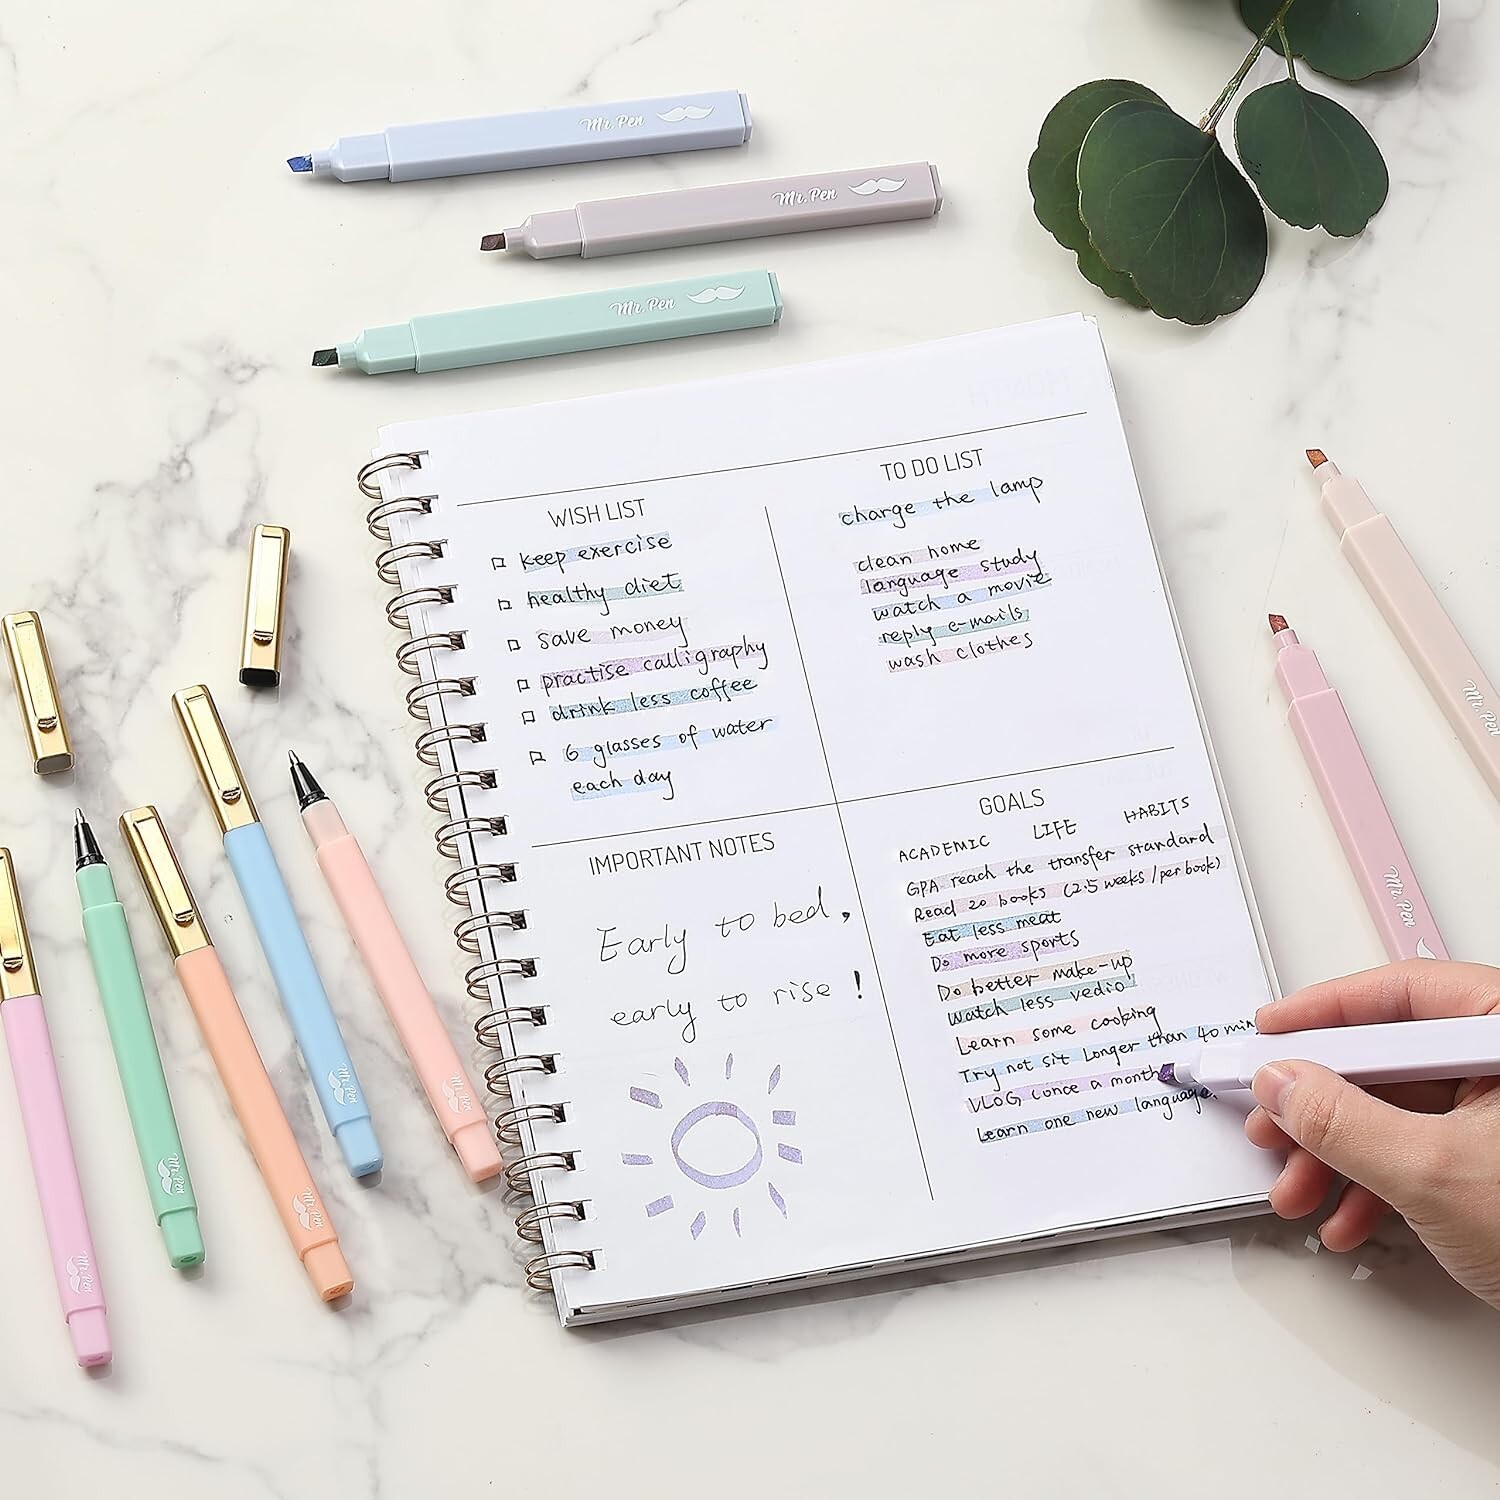 Mr. Pen
Mr. Pen
Mr. Pen
WISH LIST
keep exercise
healthy diet
save money
practise calligraphy
drink less coffee
6 glasses of water
each day
TO DO LIST
charge the lamp
clean home
language study
watch a movie
reply e-mails
wash clothes
IMPORTANT NOTES
Early to bed,
early to rise!
GOALS
ACADEMIC LIFE HABITS
GPA reach the transfer standard
Read 20 books (2.5 weeks/per book)
Eat less meat
Do more sports
Do better make-up
Watch less vedio
Learn some cooking
Try not sit longer than 40 min
VLOG (once a month
Learn one new language.
Mr. Pen
Mr. Pen
Mr. Pen
Mr. Pen
Mr. Pen
Mr. Pen
Mr. Pen